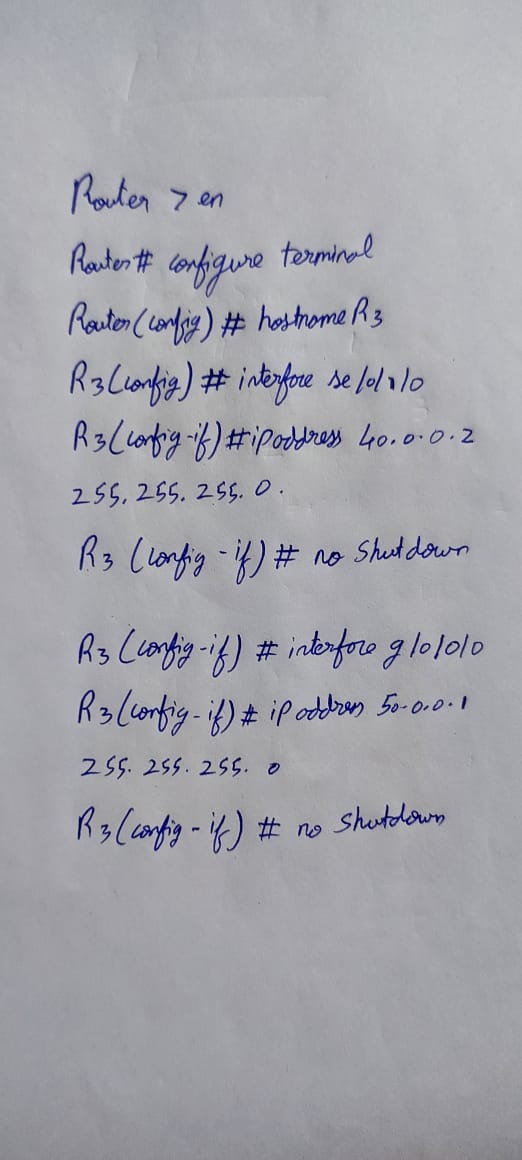 Router > en
Router# configure terminal
Router(config) # hostname R3
R3(config) # interface se/0/1/0
R3(config-if) # ip address 40.0.0.2
255.255.255.0.
R3 (config-if) # no Shutdown
R3 (config-if) # interface g/0/0/0
R3 (config-if) # ip address 50.0.0.1
255.255.255.0
R3 (config-if) # no Shutdown